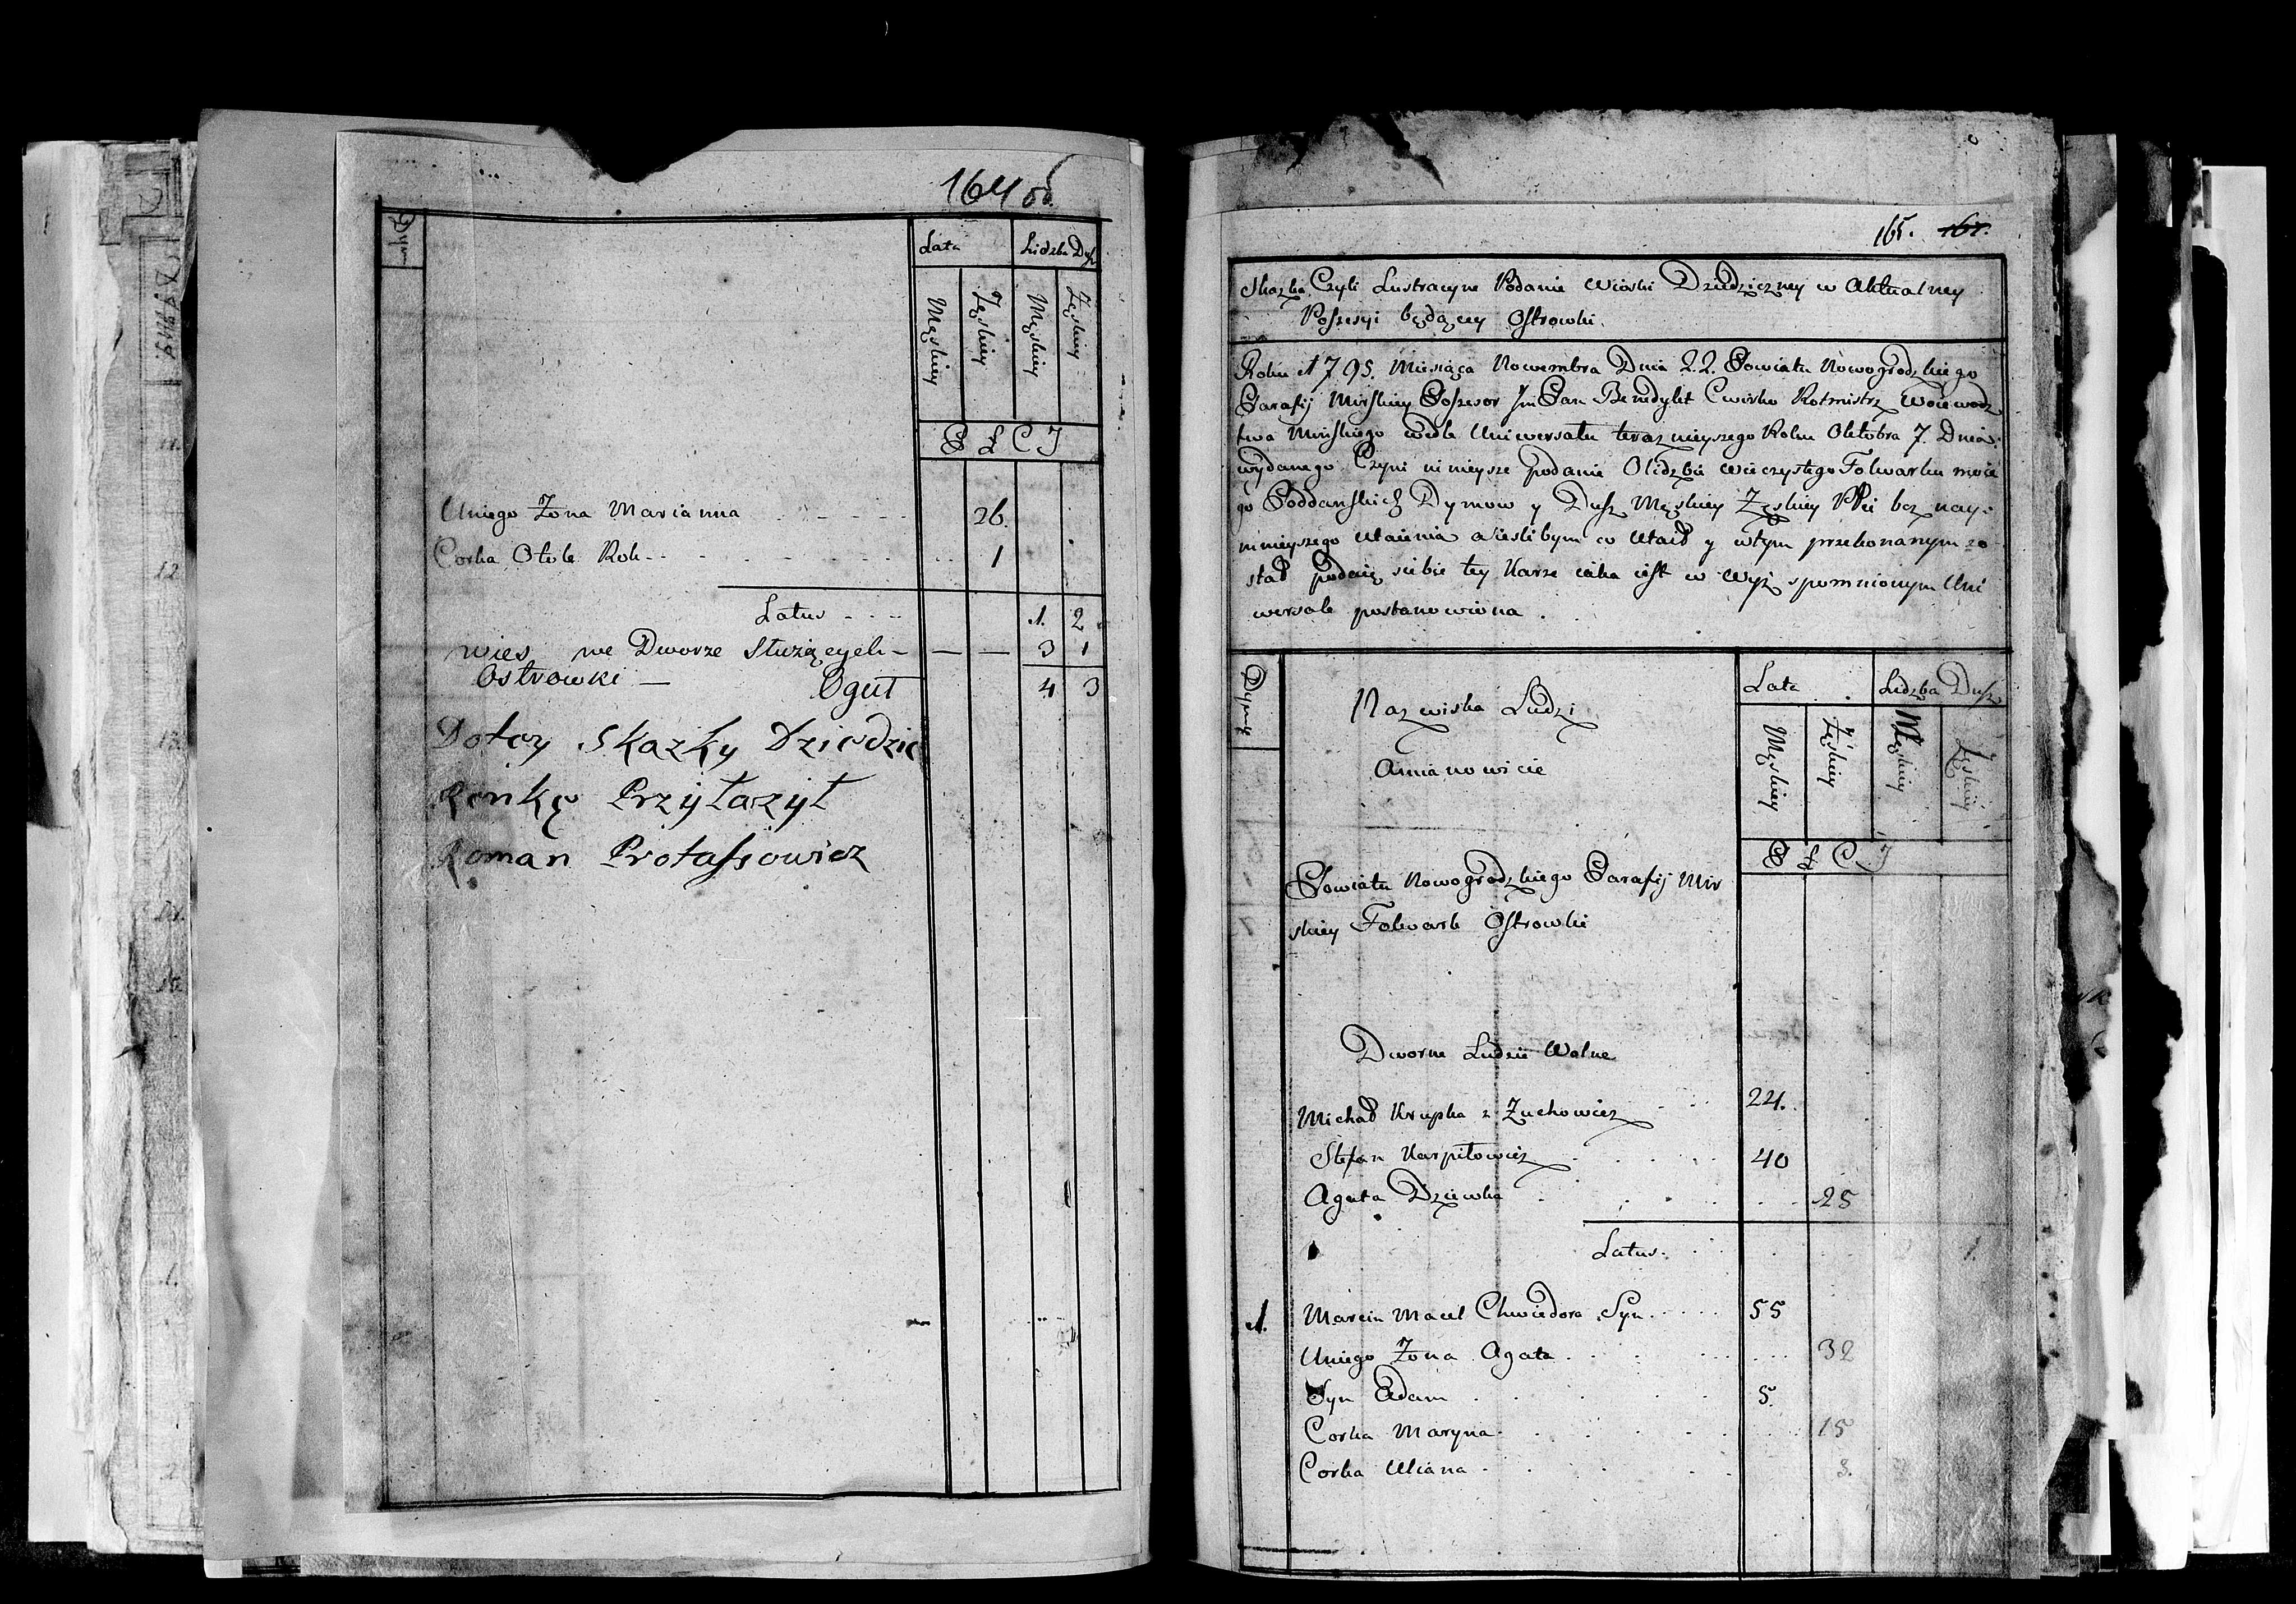 164 об
Dym
Lata
Lidzba Dusz
Męskiey
Żęskiey
Męskiey
Żęskiey
P Ł C I
Uniego Żona Marianna 26.
Corka Rok 1
Latus 1. 2
wies we Dworze Służących — — — 3 1
Ostrowki — Oguł 4 3
Do tey Skazky Dziedzic
Renkę Przyłażył
Roman Protassowicz
165. 167.
Skazka Czyli Lustracyne Podanie Wioski Dziedziczney w Aktualney
Possesyi będącey Ostrowki.
Roku 1795. Miesiąca Nowembra Dnia 22. Powiatu Nowogrodzkiego
Parafij Mirskiey Possesor Jm Pan Benedykt Cwirko Rotmistrz Woiewodz
twa Mińskiego wedle Uniwersału teraznieyszego Roku Oktobra 7. Dnia
wydanego Czyni ninieysze podanie O lidzbie wieczystego Folwarku moie
go Poddanskich Dymow y Dusz Męskiey Żęskiey Płci bez nay:
mnieyszego Utaienia a ieslibym co Utaił y wtym przekonanym zo
stał podaię siebie tey Karze iaka iest w Wyż spomnionym Uni
wersale postanowiona.
Dymy
Nazwiska Ludzi
A mianowicie
Lata
Lidzba Dusz
Męskiey
Żęskiey
Męskiey
Żęskiey
P Ł C I
Powiatu Nowogrodzkiego Parafij Mir
skiey Folwark Ostrowki
Dworne Ludzie Wolne
Michał Krupka z Żuchowicz 24.
Stefan Karpiłowicz 40
Agata Dziewka 25
Latus. 1.
1. Marcin Macel Chwiedora Syn. 55
Uniego Żona Agata 32
Syn Adam 5.
Corka Maryna 15
Corka Uliana 8.